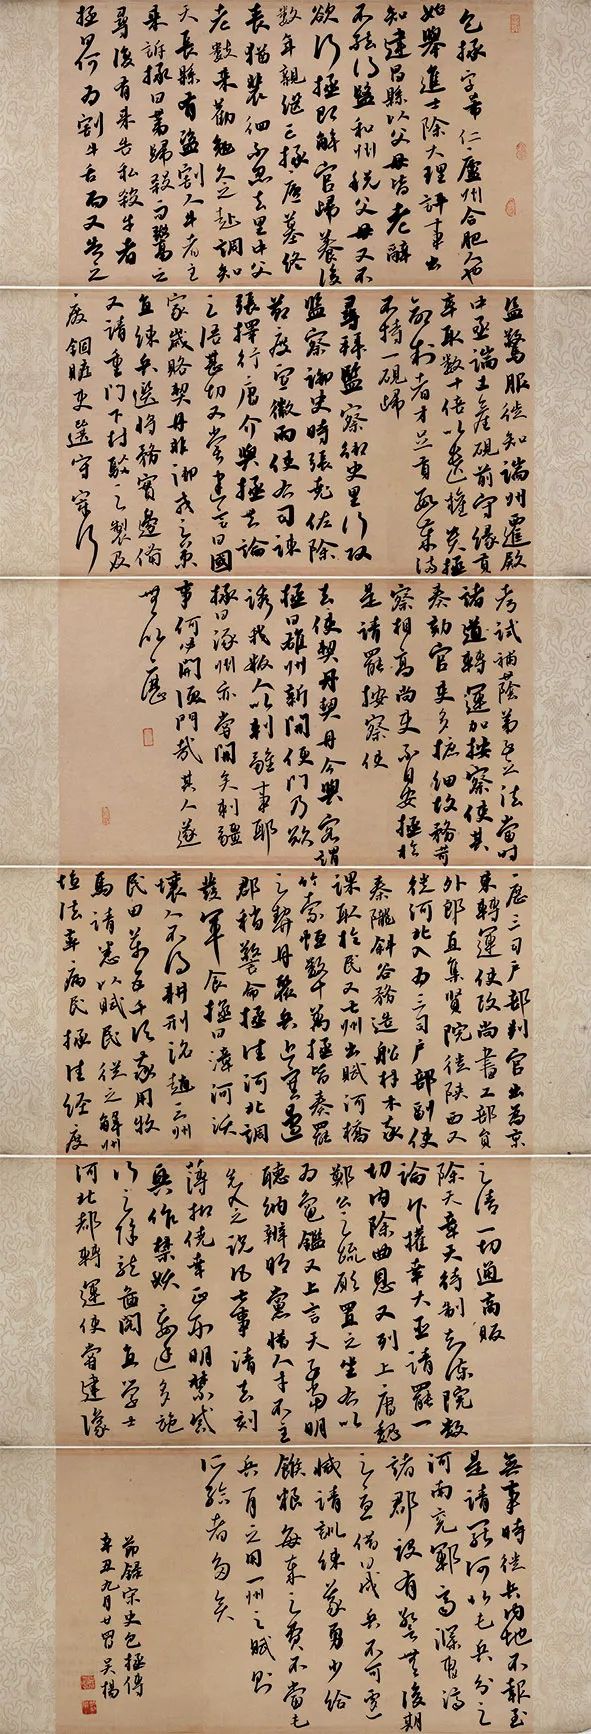 包拯字希仁廬州合肥人也
始舉進士除大理評事出
知建昌縣以父母皆老辭
不就得監和州稅父母又不
欲行拯即解官歸養後
數年親繼亡拯廬墓終
喪猶裴徊不忍去里中父
老數來勸勉久之赴調知
天長縣有盜割人牛者主
來訴拯曰第歸殺而鬻之
尋復有來告私殺牛者
拯曰何為割牛舌而又告之
盜驚服徙知端州遷殿
中丞端土產硯前守緣貢
率取數十倍以遺權貴拯
命制者才足貢數歲滿
不持一硯歸
尋拜監察御史里行改
監察御史時張堯佐除
節度宣徽兩使右司諫
張擇行唐介與拯共論
之語甚切又嘗建言曰國
家歲賂契丹非御戎之策
宜練兵選將務實邊備
又請重門下封駁之製及
廢錮贓吏選守宰行
考試補蔭弟子之法當時
諸道轉運加按察使其
奏劾官吏多摭細故務苛
察相高尚吏不自安拯於
是請罷按察使
去使契丹契丹令典客謂
拯曰雄州新開便門乃欲
誘我叛人以刺疆事耶
拯曰涿州亦嘗開矣刺疆
事何必開便門哉其人遂
無以應
歷三司戶部判官出為京
東轉運使改尚書工部員
外郎直集賢院徙陝西又
徙河北入為三司戶部副使
秦隴斜谷務造船材木率
課取於民又七州出賦河橋
竹索恆數十萬拯皆奏罷
之契丹聚兵近塞邊
郡稍警命拯往河北調
發軍食拯曰漳河沃
壤人不得耕邢洺趙三州
民田萬五千頃率用牧
馬請悉以賦民從之解州
鹽法率病民拯往經度
之請一切通商販
除天章閣待制知諫院數
論斥權幸大臣請罷一
切內除曲恩又列上唐魏
鄭公三疏願置之坐右以
為龜鑑又上言天子當明
聽納辨朋黨惜人才不主
先入之說凡七事請去刻
薄抑僥倖正刑明禁戒
興作禁妖妄朝廷多施
行之除龍圖閣直學士
河北都轉運使嘗建議
無事時徙兵內地不報至
是請罷河北屯兵分之
河南兗鄆齊濮曹濟
諸郡設有警無後期
之虞借曰戍兵不可遽
減請訓練義勇少給
餱糧每歲之費不當屯
兵一月之用一州之賦則
所給者多矣
節錄宋史包拯傳
辛丑九月廿四吳楊